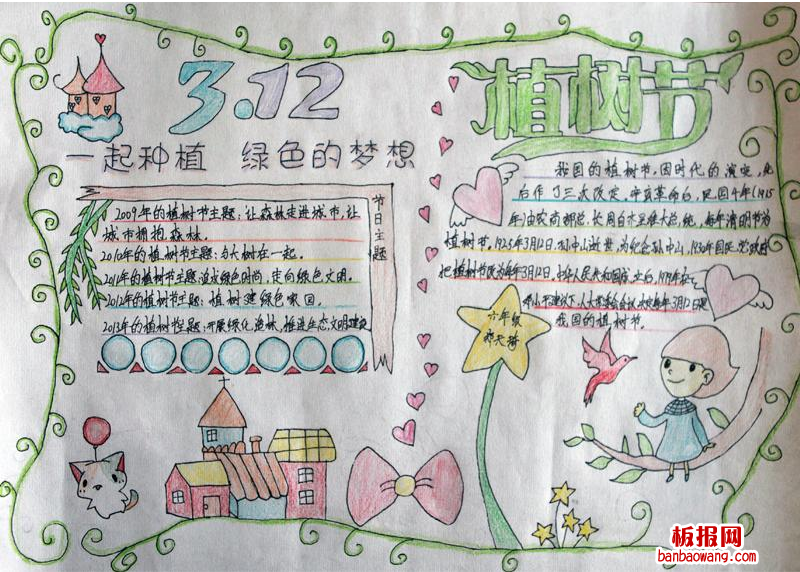 3.12
一起种植 绿色的梦想
节日主题
2009年的植树节主题：让森林走进城市，让
城市拥抱森林。
2010年的植树节主题：与大树在一起。
2011年的植树节主题：追求绿色时尚，走向绿色文明。
2012年的植树节主题：植树建绿色家园。
2013年的植树节主题：开展绿化造林，推进生态文明建设
植树节
我国的植树节，因时代的演变，先
后作了三次改定，辛亥革命后，民国4年(1915
年)由农商部总长周自齐呈准大总统，每年清明节为
植树节，1925年3月12日，孙中山逝世，为纪念孙中山，1930年国民党政府
把植树节改为每年3月12日，中华人民共和国成立后，1979年在
我国的植树节。
六年级
板报网
banbaowang.com